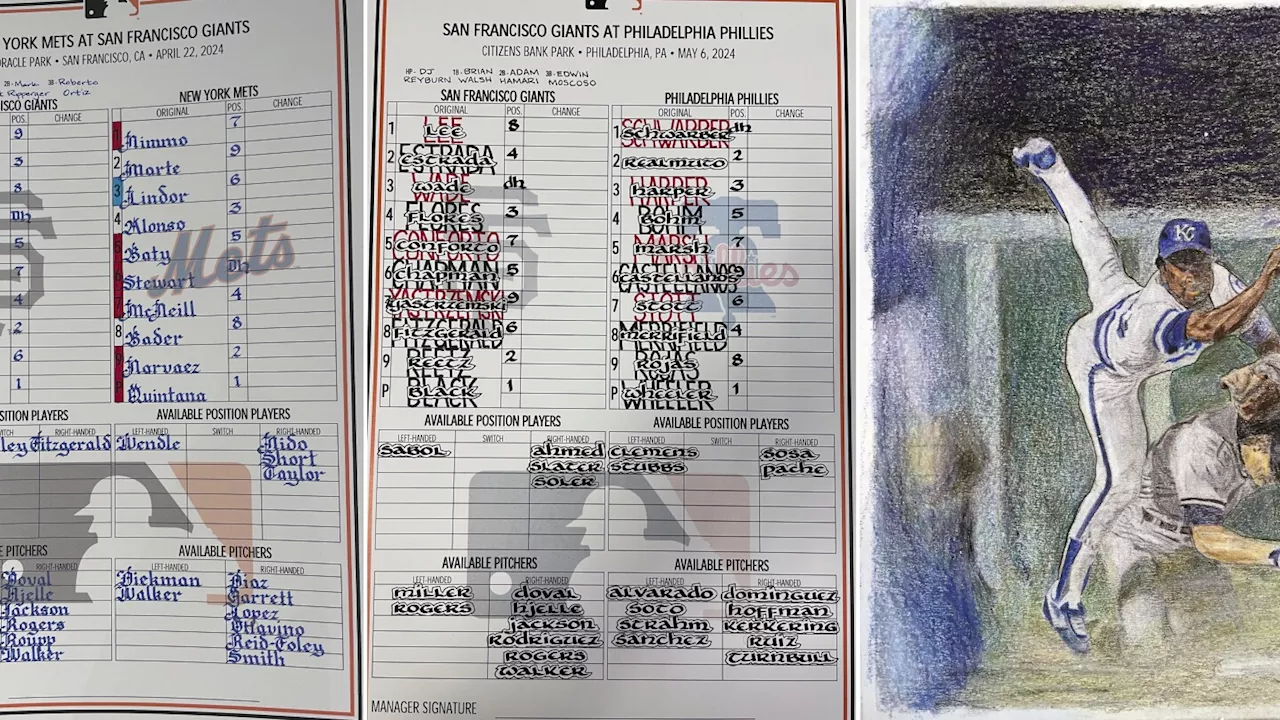 YORK METS AT SAN FRANCISCO GIANTS
ORACLE PARK • SAN FRANCISCO, CA • APRIL 22, 2024
2B-Mark 3B-Roberto
Ripperger Ortiz
GIANTS
POS. CHANGE
9
3
8
Dh
5
7
4
2
6
1
NEW YORK METS
ORIGINAL POS. CHANGE
1 Nimmo 7
2 Marte 9
3 Lindor 6
4 Alonso 3
5 Baty 5
6 Stewart Dh
7 McNeill 4
8 Bader 8
9 Narvaez 2
P Quintana 1
Mets
POSITION PLAYERS
RIGHT-HANDED
Fitzgerald
AVAILABLE POSITION PLAYERS
LEFT-HANDED SWITCH RIGHT-HANDED
Wendle Nido
Short
Taylor
PITCHERS
RIGHT-HANDED
Doval
Hjelle
Jackson
Rogers
Roupp
Walker
AVAILABLE PITCHERS
LEFT-HANDED RIGHT-HANDED
Diekman Diaz
Walker Garrett
Lopez
Ottavino
Reid-Foley
Smith
SAN FRANCISCO GIANTS AT PHILADELPHIA PHILLIES
CITIZENS BANK PARK • PHILADELPHIA, PA • MAY 6, 2024
HP-DJ 1B-BRIAN 2B-ADAM 3B-EDWIN
REYBURN WALSH HAMARI MOSCOSO
SAN FRANCISCO GIANTS
ORIGINAL POS. CHANGE
1 LEE 8
2 ESTRADA 4
3 WADE dh
4 FLORES 3
5 CONFORTO 7
6 CHAPMAN 5
7 YASTRZEMSKI 9
8 FITZGERALD 6
9 REETZ 2
P BLACK 1
PHILADELPHIA PHILLIES
ORIGINAL POS. CHANGE
1 SCHWARBER dh
2 REALMUTO 2
3 HARPER 3
4 BOHM 5
5 MARSH 7
6 CASTELLANOS 9
7 STOTT 6
8 MERRIFIELD 4
9 ROJAS 8
P WHEELER 1
AVAILABLE POSITION PLAYERS
LEFT-HANDED SWITCH RIGHT-HANDED
SABOL AHMED
SLATER
SOLER
AVAILABLE POSITION PLAYERS
LEFT-HANDED SWITCH RIGHT-HANDED
CLEMENS SOSA
STUBBS PACHE
AVAILABLE PITCHERS
LEFT-HANDED RIGHT-HANDED
MILLER DOVAL
ROGERS HJELLE
JACKSON
RODRIGUEZ
ROGERS
WALKER
AVAILABLE PITCHERS
LEFT-HANDED RIGHT-HANDED
ALVARADO DOMINGUEZ
SOTO HOFFMAN
STRAHM KERKERING
SANCHEZ RUIZ
TURNBULL
MANAGER SIGNATURE
KC